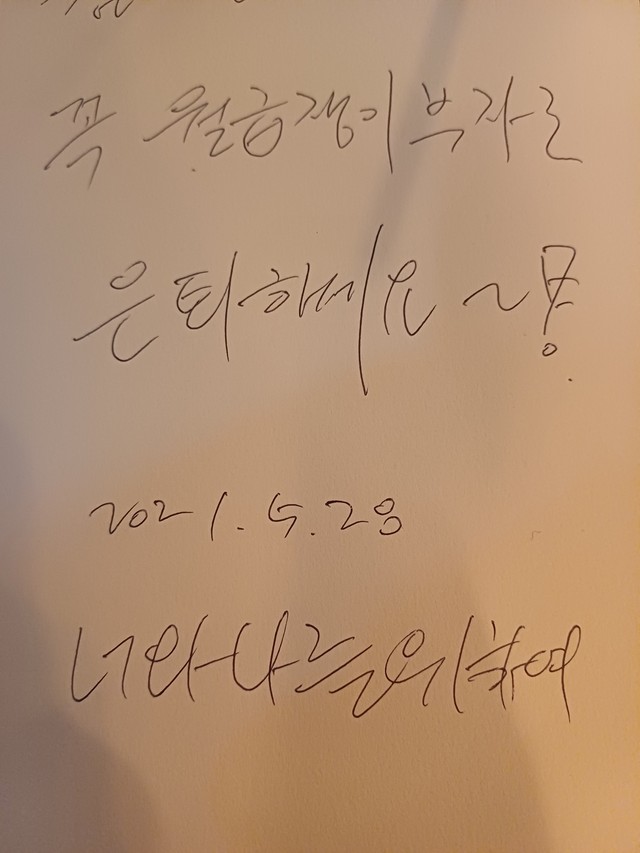 꼭 월급쟁이부자로
은퇴하세요~용
2021. 5. 28
너와나를위하여